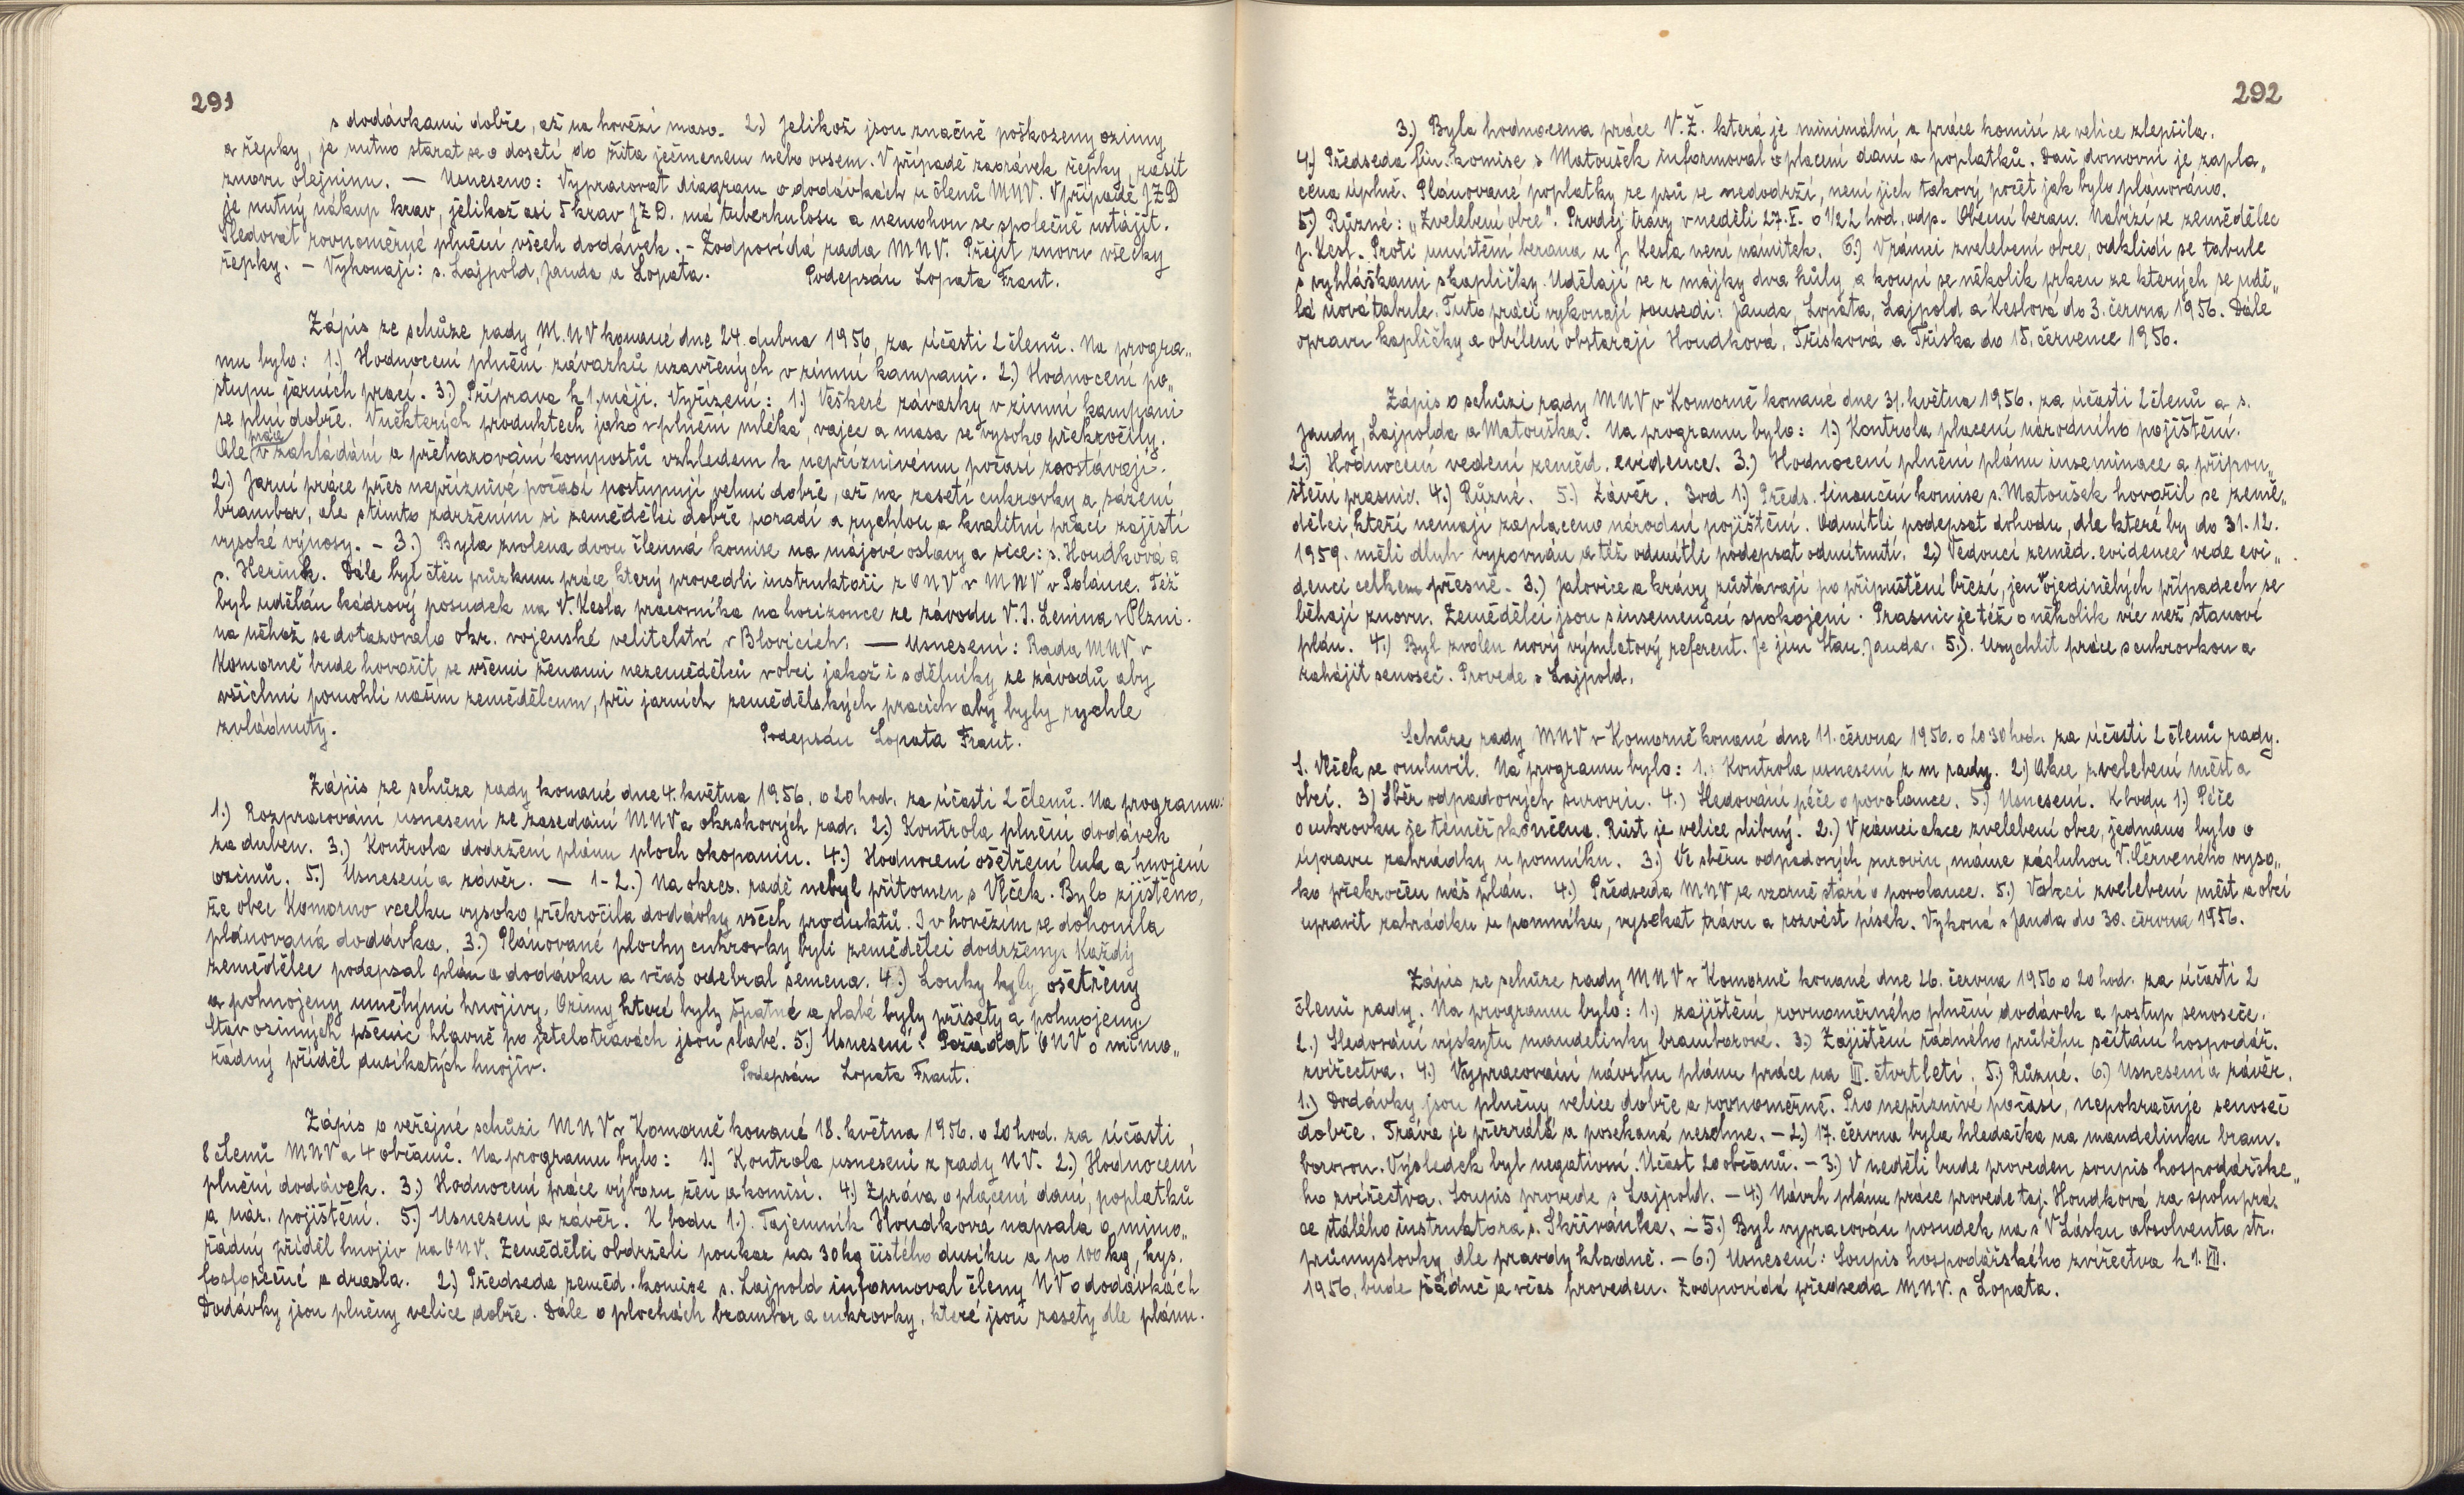 291
s dodávkami dobře, až na hovězí maso. 2.) Jelikož jsou značně poškozeny ozimy
a řepky, je nutno starat se o dosetí do žita ječmenem nebo ovsem. V případě zaorávek řepky, zasít
znovu olejninu. — Usneseno: Vypracovat diagram o dodávkách u členů MNV. V případě JZD
je nutný nákup krav, jelikož asi 5 krav JZD. má tuberkulosu a nemohou se společně ustájit.
Sledovat rovnoměrné plnění všech dodávek. - Zodpovídá rada MNV. Přejít znovu všecky
řepky. — Vykonají: s. Lajpold, Janda a Lopata. Podepsán Lopata Frant.
Zápis ze schůze rady M.NV konané dne 24. dubna 1956, za účasti 2 členů. Na progra„
mu bylo: 1.) Hodnocení plnění závazků uzavřených v zimní kampani. 2.) Hodnocení po„
stupu jarních prací. 3.) Příprava k 1. máji. Vyřízení: 1.) Veškeré závazky v zimní kampani
se plní dobře. V některých produktech jako v plnění mléka, vajec a masa se vysoko překročily.
Ale práce v zakládání a přehazování kompostů vzhledem k nepříznivému počasí zaostávají.
2.) Jarní práce přes nepříznivé počasí postupují velmi dobře, až na zasetí cukrovky a sázení
brambor, ale s tímto zdržením si zemědělci dobře poradí a rychlou a kvalitní prací zajistí
vysoké výnosy. - 3.) Byla zvolena dvou členná komise na májové oslavy a sice: s. Houdková a
s. Herink. Dále byl čten průzkum práce který provedli instruktoři z ONV v MNV v Poláme. Též
byl udělán kádrový posudek na V. Kesla pracovníka na horizonce ze závodu V. I. Lenina v Plzni.
na něhož se dotazovalo okr. vojenské velitelství v Blovicích. — Usnesení: Rada MNV v
Komorně bude hovořit se všemi ženami nezemědělců v obci jakož i s dělníky ze závodů aby
všichni pomohli našim zemědělcum, při jarních zemědělských pracích aby byly rychle
zvládnuty. Podepsán Lopata Frant.
Zápis ze schůze rady konané dne 4. května 1956. o 20 hod. za účasti 2 členů. Na programu:
1.) Rozpracování usnesení ze zasedání MNV a okrskových rad. 2.) Kontrola plnění dodávek
za duben. 3.) Kontrola dodržení plánu ploch okopanin. 4.) Hodnocení ošetření luk a hnojení
ozimů. 5.) Usnesení a závěr. — 1-2.) Na okres. radě nebyl přítomen s Vlček. Bylo zjištěno,
že obec Komorno vcelku vysoko překročila dodávky všech produktů. I v hovězím se dohonila
plánovaná dodávka. 3.) Plánované plochy cukrovky byli zemědělci dodrženy. Každý
zemědělec podepsal plán a dodávku a včas odebral semena. 4.) Louky byly ošetřeny
a pohnojeny umělými hnojivy. Ozimy které byly špatné a slabé byly přisety a pohnojeny.
Stav ozimých pšenic hlavně po jetelotravách jsou slabé. 5.) Usnesení: Požádat ONV o mimo„
řádný příděl dusíkatých hnojiv. Podepsán Lopata Frant.
Zápis o veřejné schůzi MNV v Komorně konané 18. května 1956. o 20 hod. za účasti
8 členů MNV a 4 občanů. Na programu bylo: 1.) Kontrola usnesení z rady NV. 2.) Hodnocení
plnění dodávek. 3.) Hodnocení práce výboru žen a komisí. 4.) Zpráva o placení daní, poplatků
a nár. pojištění. 5.) Usnesení a závěr. K bodu 1.). Tajemník Houdková napsala o mimo„
řádný příděl hnojiv na ONV. Zemědělci obdrželi poukaz na 30 kg čistého dusíku a po 100 kg kys.
fosforečné a drasla. 2.) Předseda zeměd. komise s. Lajpold informoval členy NV o dodávkách
Dodávky jsou plněny velice dobře. Dále o plochách brambor a cukrovky, které jsou zasety dle plánu.
292
3.) Byla hodnocena práce V.Ž. která je minimální a práce komisí se velice zlepšila.
4.) Předseda fin. komise s Matoušek informoval o placení daní a poplatků. Daň domovní je zapla„
cena úplně. Plánované poplatky ze psů se nedodrží, není jich takový počet jak bylo plánováno.
5.) Různé: „Zvelebení obce". Prodej trávy v neděli 27. V. o 1/2 2 hod. odp. Obecní beran. Nabízí se zemědělec
J. Kesl. Proti umístění berana u J. Kesla není námitek. 6.) V rámci zvelebení obce, odklidí se tabule
s vyhláškami s kapličky. Udělají se z májky dva kůly a koupí se několik prken ze kterých se udě„
lá nová tabule. Tuto práci vykonají sousedi: Janda, Lopata, Lajpold a Keslová do 3. června 1956. Dále
opravu kapličky a obílení obstarají Houdková, Třísková a Tříska do 15. července 1956.
Zápis o schůzi rady MNV v Komorně konané dne 31. května 1956. za účasti 2 členů a s.
Jandy, Lajpolda a Matouška. Na programu bylo: 1.) Kontrola placení národního pojištění.
2.) Hodnocení vedení zeměd. evidence. 3.) Hodnocení plnění plánu inseminace a připou„
štění prasnic. 4.) Různé. 5.) Závěr. Bod 1.) Předs. finanční komise s. Matoušek hovořil se země„
dělci, kteří nemají zaplaceno národní pojištění. Odmítli podepsat dohodu, dle které by do 31. 12.
1959. měli dluh vyrovnán a též odmítli podepsat odmítnutí. 2.) Vedoucí zeměd. evidence vede evi„
denci celkem přesně. 3.) Jalovice a krávy zůstávají po připuštění březí, jen v ojedinělých případech se
běhají znovu. Zemědělci jsou s insemenací spokojeni. Prasnic je též o několik víc než stanoví
plán. 4.) Byl zvolen nový výmlatový referent. Je jím Stan. Janda. 5.). Urychlit práce s cukrovkou a
zahájit senoseč. Provede s Lajpold.
Schůze rady MNV v Komorně konané dne 11. června 1956. o 20 30 hod. za účasti 2 členů rady.
S. Vlček se omluvil. Na programu bylo: 1.) Kontrola usnesení z m rady. 2.) Akce zvelebení měst a
obcí. 3.) Sběr odpadových surovin. 4.) Sledování péče o povolance. 5.) Usnesení. K bodu 1.) Péče
o cukrovku je téměř skončena. Růst je velice slibný. 2.) V rámci akce zvelebení obce, jednáno bylo o
úpravu zahrádky u pomníku. 3.) Ve sběru odpadových surovin, máme zásluhou V. Červeného vyso„
ko překročen náš plán. 4.) Předseda MNV se vzorně stará o povolance. 5.) V akci zvelebení měst a obcí
upravit zahrádku u pomníku, vysekat trávu a rozvést písek. Vykoná s Janda do 30. června 1956.
Zápis ze schůze rady MNV v Komorně konané dne 26. června 1956 o 20 hod. za účasti 2
členů rady. Na programu bylo: 1.) zajištění rovnoměrného plnění dodávek a postup senoseče.
2.) Sledování výskytu mandelinky bramborové. 3.) Zajištění řádného průběhu sčítání hospodář.
zvířectva. 4.) Vypracování návrhu plánu práce na III. čtvrtletí. 5.) Různé. 6.) Usnesení a závěr.
1.) Dodávky jsou plněny velice dobře a rovnoměrně. Pro nepříznivé počasí, nepokračuje senoseč
dobře. Tráva je přezrálá a posekaná neschne. - 2.) 17. června byla hledačka na mandelinku bram.
borovou. Výsledek byl negativní. Účast 20 občanů. - 3.) V neděli bude proveden soupis hospodářske„
ho zvířectva. Soupis provede s Lajpold. - 4.) Návrh plánu práce provede taj. Houdková za spolupra.
ce stálého instruktora s. Skřivánka. - 5.) Byl vypracován posudek na s V Lásku absolventa stř.
průmyslovky dle pravdy kladně. - 6.) Usnesení: Soupis hospodářského zvířectva k 1. VII.
1956, bude řádně a včas proveden. Zodpovídá předseda MNV. s Lopata.